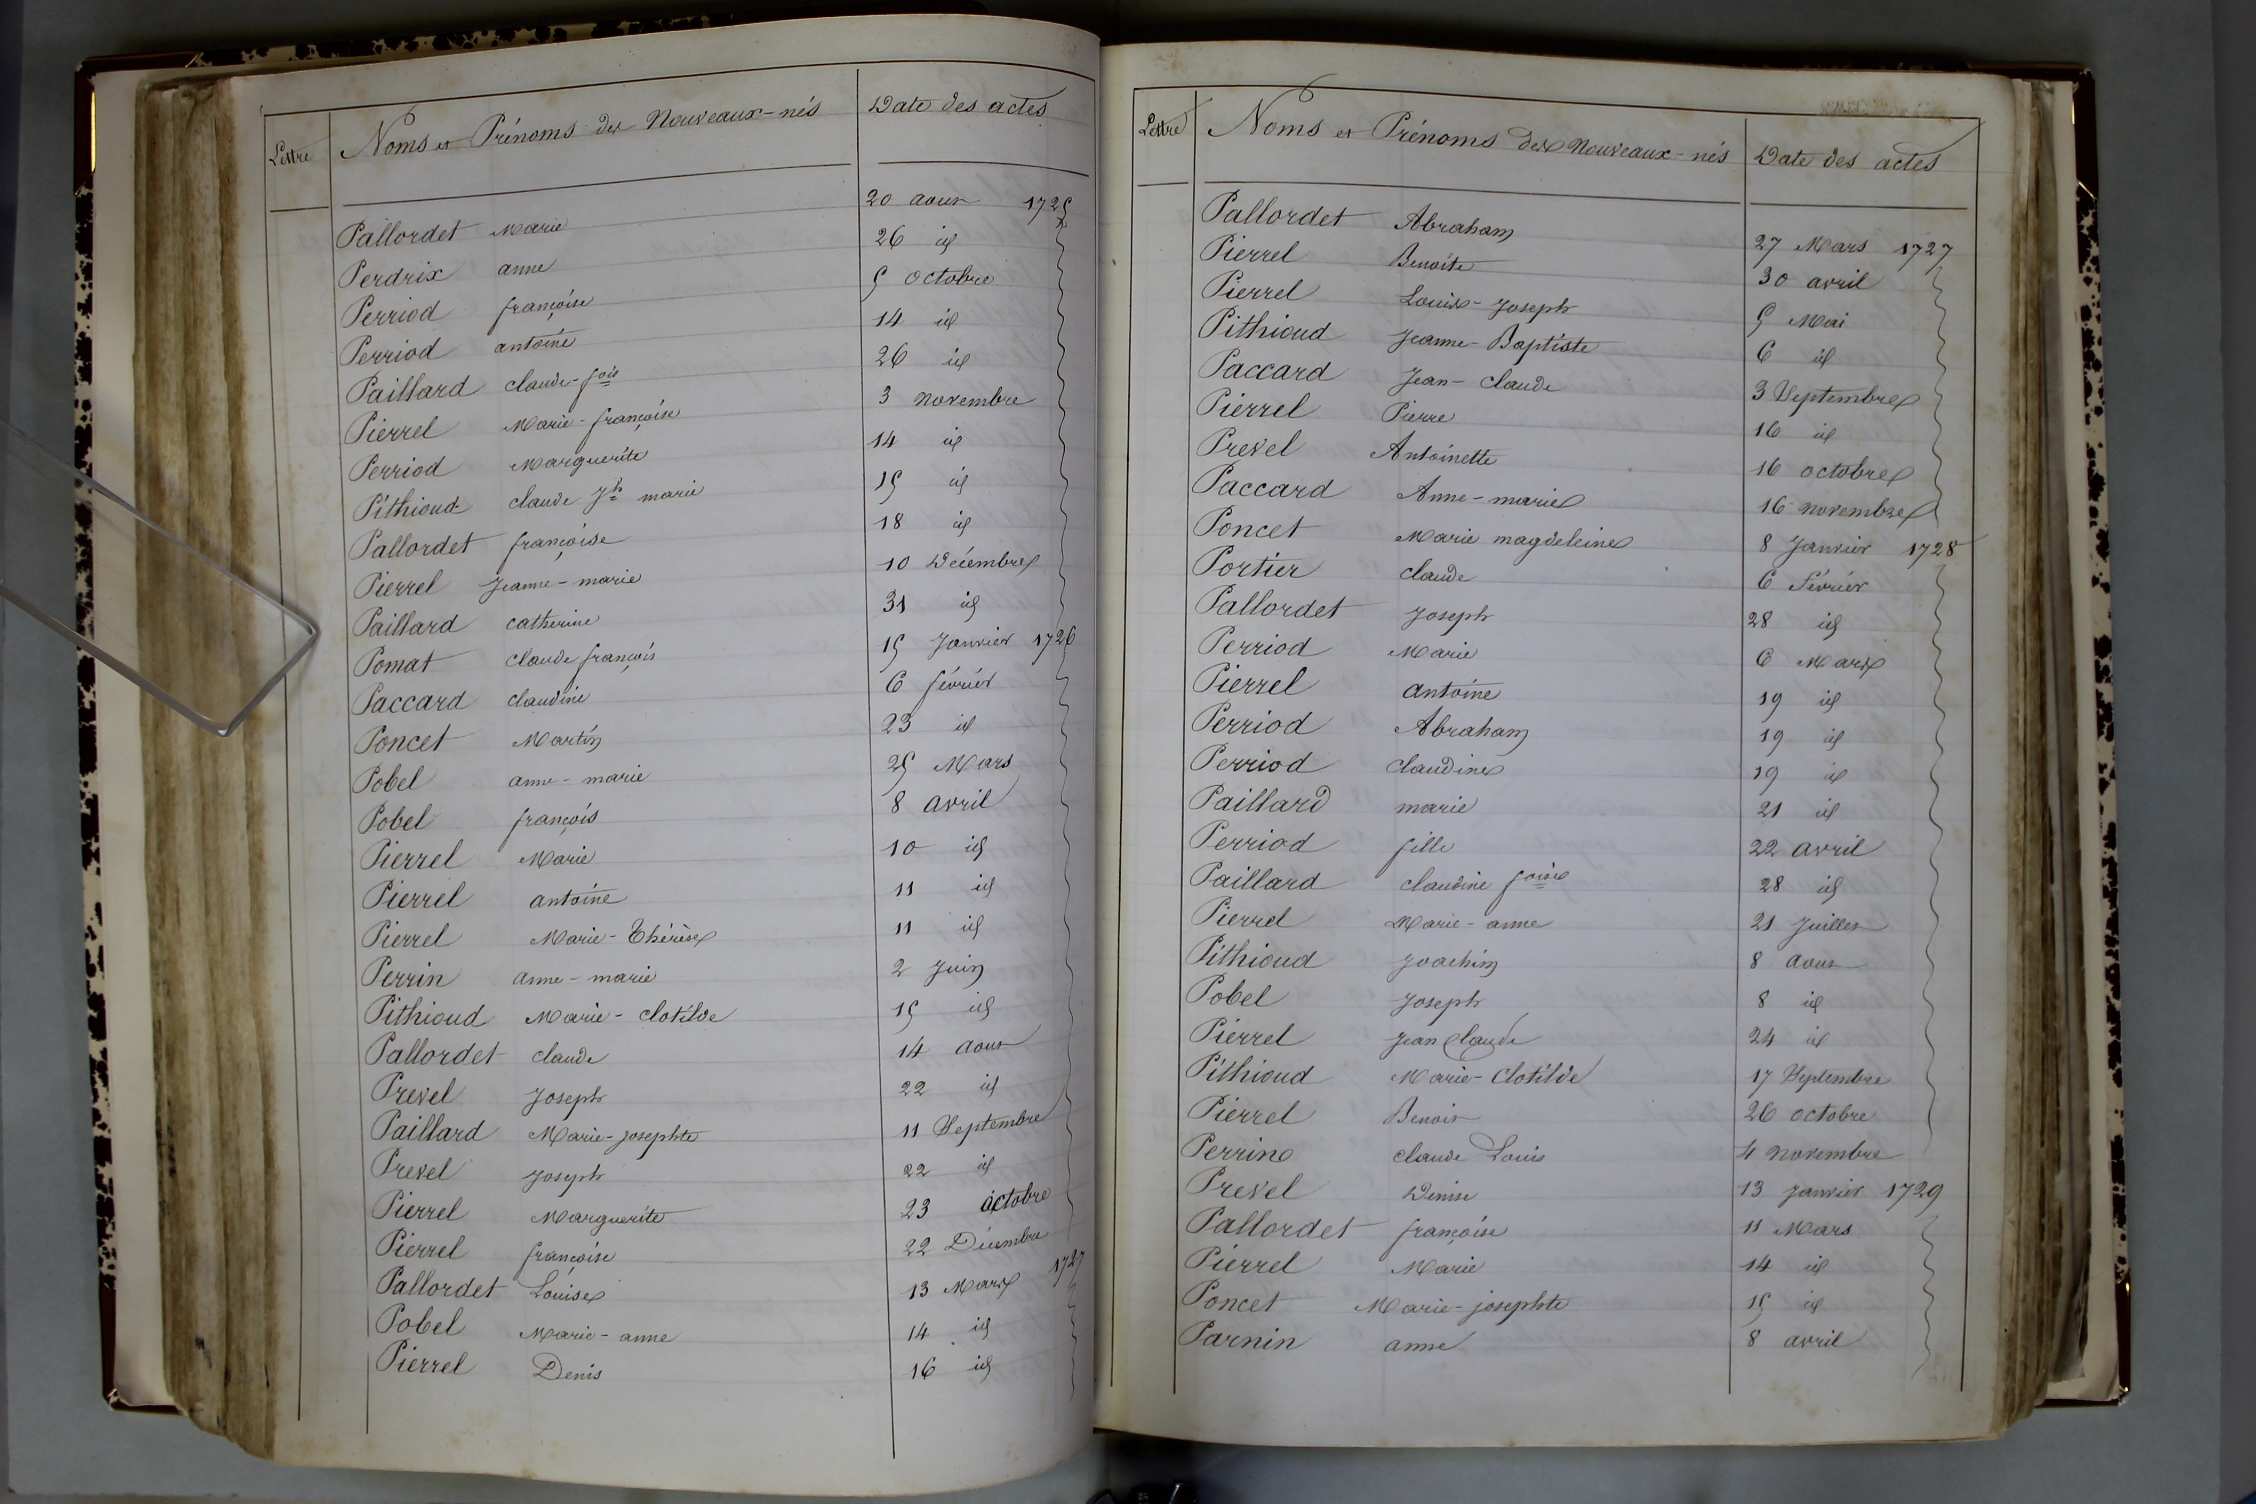 Lettre Noms et Prénoms des Nouveaux-nés Date des actes
Pallordet Marie 20 aout 1725
Perdrix anne 26 id
Perriod françoise 5 octobre
Perriod antoine 14 id
Paillard claude-fois 26 id
Pierrel Marie-françoise 3 novembre
Perriod Marguerite 14 id
Pithioud claude Jh marie 15 id
Pallordet françoise 18 id
Pierrel Jeanne-marie 10 Décembre
Paillard catherine 31 id
Pomat claude françois 15 Janvier 1726
Paccard claudine 6 février
Poncet Martin 23 id
Pobel anne-marie 25 Mars
Pobel françois 8 avril
Pierrel Marie 10 id
Pierrel antoine 11 id
Pierrel Marie-Thérèse 11 id
Perrin anne-marie 2 Juin
Pithioud Marie-clotilde 15 id
Pallordet claude 14 aout
Prevel Joseph 22 id
Paillard Marie-josephte 11 Septembre
Prevel Joseph 22 id
Pierrel Marguerite 23 octobre
Pierrel françoise 22 Décembre
Pallordet Louise 13 Mars 1727
Pobel Marie-anne 14 id
Pierrel Denis 16 id
Lettre Noms et Prénoms des Nouveaux-nés Date des actes
Pallordet Abraham 27 Mars 1727
Pierrel Benoite 30 avril
Pierrel Louis-Joseph 5 Mai
Pithioud Jeanne-Baptiste 6 id
Paccard Jean-claude 3 Septembre
Pierrel Pierre 16 id
Prevel Antoinette 16 octobre
Paccard Anne-marie 16 novembre
Poncet Marie magdeleine 8 Janvier 1728
Portier claude 6 Février
Pallordet Joseph 28 id
Perriod Marie 6 Mars
Pierrel antoine 19 id
Perriod Abraham 19 id
Perriod claudine 19 id
Paillard marie 21 id
Perriod fille 22 avril
Paillard claudine foise 28 id
Pierrel Marie-anne 21 Juillet
Pithioud Joachim 8 aout
Pobel Joseph 8 id
Pierrel Jean Claude 24 id
Pithioud Marie-Clotilde 17 Septembre
Pierrel Benoit 26 octobre
Perrin claude Louis 4 novembre
Prevel Denise 13 Janvier 1729
Pallordet françoise 11 Mars
Pierrel Marie 14 id
Poncet Marie-josephte 15 id
Parnin anne 8 avril